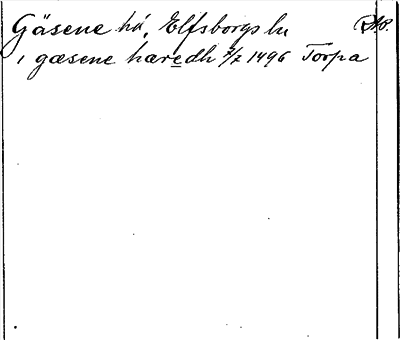 Gäsene hd, Elfsborgs ln RAP.
i gæsene hæredh 4/7 1496 Torpa